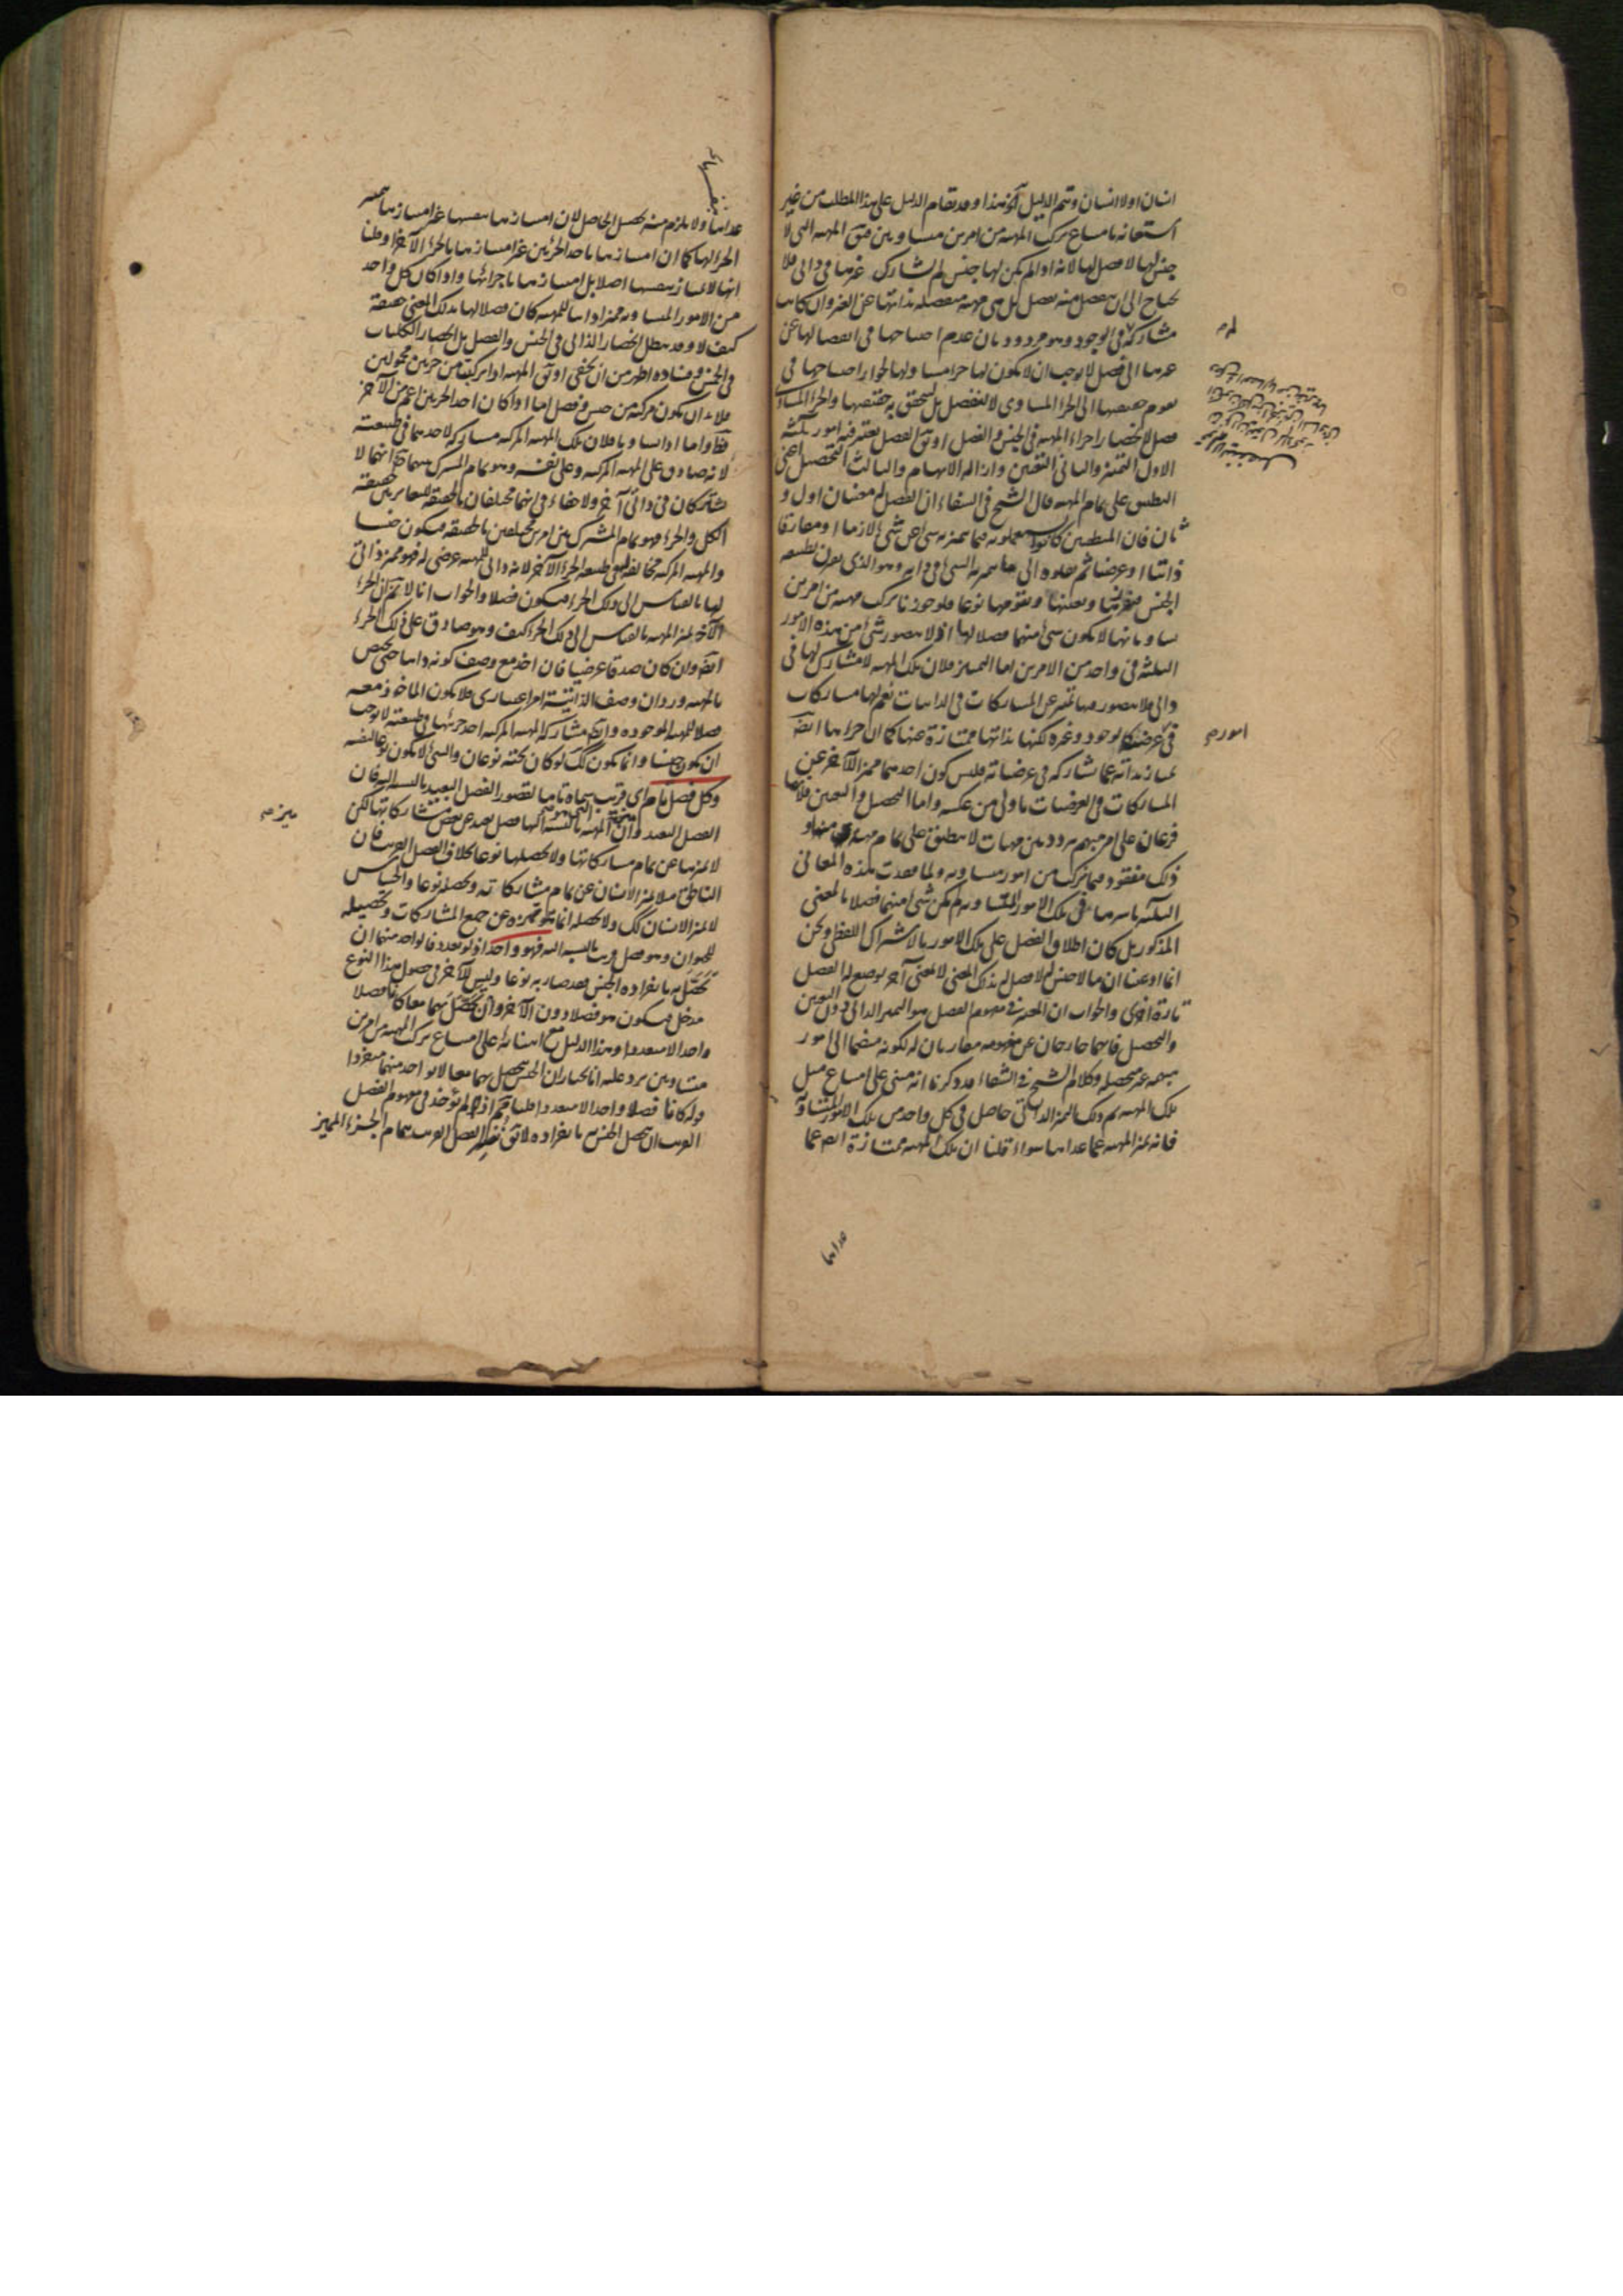 انسان اولا انسان وتم الدليل هذا وقد تقام الدليل على هذا المطلب من غير
استعانة بامتناع تركب المهية من امرين متساويين فيق المهية التى لا
جنس لها لا فصل لها لانه اذا لم يكن لها جنس لم تشارك غيرها فى ذاتى فلا
تحتاج الى ان ينفصل عنه بفصل بل هى مهية منفصلة بذاتها عن الغير وان كانت
مشاركة فى الوجود وهو مردود بان عدم احتياجها فى انفصالها عن
غيرها الى فصل لا يوجب ان لا يكون لها جزء مساو لها لجواز احتياجها فى
تقوم حقيقتها الى الجزء المساوى لا لتنفصل بل لتحقق به حقيقتها والجزء المساوى
فصل لانحصار اجزاء المهية فى الجنس والفصل او يق الفصل يعتبر فيه امور ثلثة
الاول التميز والثانى التعين وازالة الابهام والثالث التحصيل اعنى
التطبيق على تمام المهية قال الشيخ فى الشفاء ان الفصل له معنيان اول و
ثان فان المنطقيين كانوا يستعملونه فيما يتميز به شئ عن شئ لازما او مفارقا
ذاتيا او عرضيا ثم نقلوه الى ما يتميز به الشئ فى ذاته وهو الذى يقرن بطبيعة
الجنس فيفرزها ويعينها ويقومها نوعا فلو جوزنا تركب مهية من امرين
يساويانها لا يكون شئ منهما فصلا لها اذ لا يتصور شئ من هذه الامور
الثلثة فى واحد من الامرين اما التميز فلان تلك المهية لا مشارك لها فى
ذاتى فلا يتصور فيها تميز عن المشاركات فى الذاتيات نعم لها مشاركات
فى عرضى كالوجود وغيره لكنها بذاتها ممتازة عنها كما ان جزءها ايضا
يمتاز بذاته عما شاركه فى عرضياته فليس كون احدهما مميزا للآخر عن
المشاركات فى العرضيات باولى من عكسه واما التحصيل والتعين فلانهما
فرعان على امر مبهم مردد بين مهيات لا ينطبق على تمام مهية منها و
ذلك مفقود فيما تركب من امور متساوية ولما فقدت هذه المعانى
الثلثة باسرها فى تلك الامور المتساوية لم يكن شئ منهما فصلا بالمعنى
المذكور بل كان اطلاق الفصل على تلك الامور بالاشتراك اللفظى ونحن
انما ادعينا ان ما لا جنس له لا فصل له بذلك المعنى لا بمعنى آخر يوضع له الفصل
تارة اخرى والجواب ان المعتبر فى مفهوم الفصل هو التميز الذاتى دون التعين
والتحصيل فانهما خارجان عن مفهومه مقارنان له لكونه منضما الى امور
مبهمة غير متحصلة وكلام الشيخ فى الشفاء قد ذكرنا انه مبنى على امتناع مثل
تلك المهية ثم ذلك التميز الذاتى حاصل فى كل واحد من تلك الامور المتساوية
فانه يميز المهية عما عداها سواء قلنا ان تلك المهية ممتازة ايضا عما
عداها
لم
امور م
عداها ولا يلزم منه تحصيل الحاصل لان امتيازها بنفسها غير امتيازها بتميز
الجزء لها كما ان امتيازها باحد الجزئين غير امتيازها بالجزء الآخر او قلنا
انها لا تمتاز بنفسها اصلا بل امتيازها باجزائها واذا كان كل واحد
من الامور المتساوية مميزا ذاتيا للمهية كان فصلا لها بذلك المعنى حقيقة
كيف لا وقد بطل انحصار الذاتى فى الجنس والفصل بل انحصار الكليات
فى الخمس وفساده اظهر من ان يخفى او يق المهية اذا تركبت من جزئين محمولين
فلا بد ان يكون مركبة من جنس وفصل اما اذا كان احد الجزئين اعم من الآخر
فظ واما اذا تساويا فلان تلك المهية المركبة مشاركة لاحدهما فى طبيعته
لانه صادق على المهية المركبة وعلى نفسه وهو تمام المشترك بينهما اذ لا
يشتركان فى ذاتى آخر ولا خفاء فى انهما مختلفان بالحقيقة لتغاير حقيقة
الكل والجزء فهو تمام المشترك بين امرين مختلفين بالحقيقة فيكون جنسا
والمهية المركبة مخالفة فى طبيعة الجزء الآخر لانه ذاتى للمهية عرضى له فهو مميز ذاتى
لها بالقياس الى ذلك الجزء فيكون فصلا والجواب انا لا نم ان الجزء
الآخر يميز المهية بالقياس الى ذلك الجزء كيف وهو صادق على ذلك الجزء
ايضا وان كان صدقا عرضيا فان اخذ مع وصف كونه ذاتيا حتى يختص
بالمهية ورد ان وصف الذاتية امر اعتبارى فلا يكون الماخوذ معه
فصلا للمهية الموجودة وايضا مشاركة المهية المركبة احد جزئيها فى طبيعته لا يوجب
ان يكون جنسا وانما يكون كك لو كان تحته نوعان والشئ لا يكون نوعا لنفسه
وكل فصل تام اى قريب سماه تاما لقصور الفصل البعيد بالنسبة اليه فان
الفصل البعيد وان ميز المهية التى هو بالنسبة اليها فصل بعيد عن بعض مشاركاتها لكن
لا يميزها عن تمام مشاركاتها ولا يحصلها نوعا بخلاف الفصل القريب فان
الناطق مثلا يميز الانسان عن تمام مشاركاته ويحصله نوعا والحساس
لا يميز الانسان كك ولا يحصله انما هو تميزه عن جميع المشاركات وتحصيله
للحيوان وهو فصل قريب بالنسبة اليه فهو واحد اذ لو تعدد فالواحد منهما ان
تحصل به بانفراده الجنس فقد صار به نوعا وليس للآخر فى حصول هذا النوع
مدخل فيكون هو فصلا دون الآخر وان تحصل بهما معا كانا فصلا
واحدا لا متعددا وهذا الدليل مع ابتنائه على امتناع تركب المهية من امرين
متساويين يرد عليه انا نختار ان الجنس يتحصل بهما معا لا بواحد منهما منفردا
قوله كانا فصلا واحدا لا متعددا قلنا مم اذ لم يؤخذ فى مفهوم الفصل
القريب ان يتحصل الجنس به بانفراده لا يق نفسر الفصل القريب بتمام الجزء المميز
ميز م